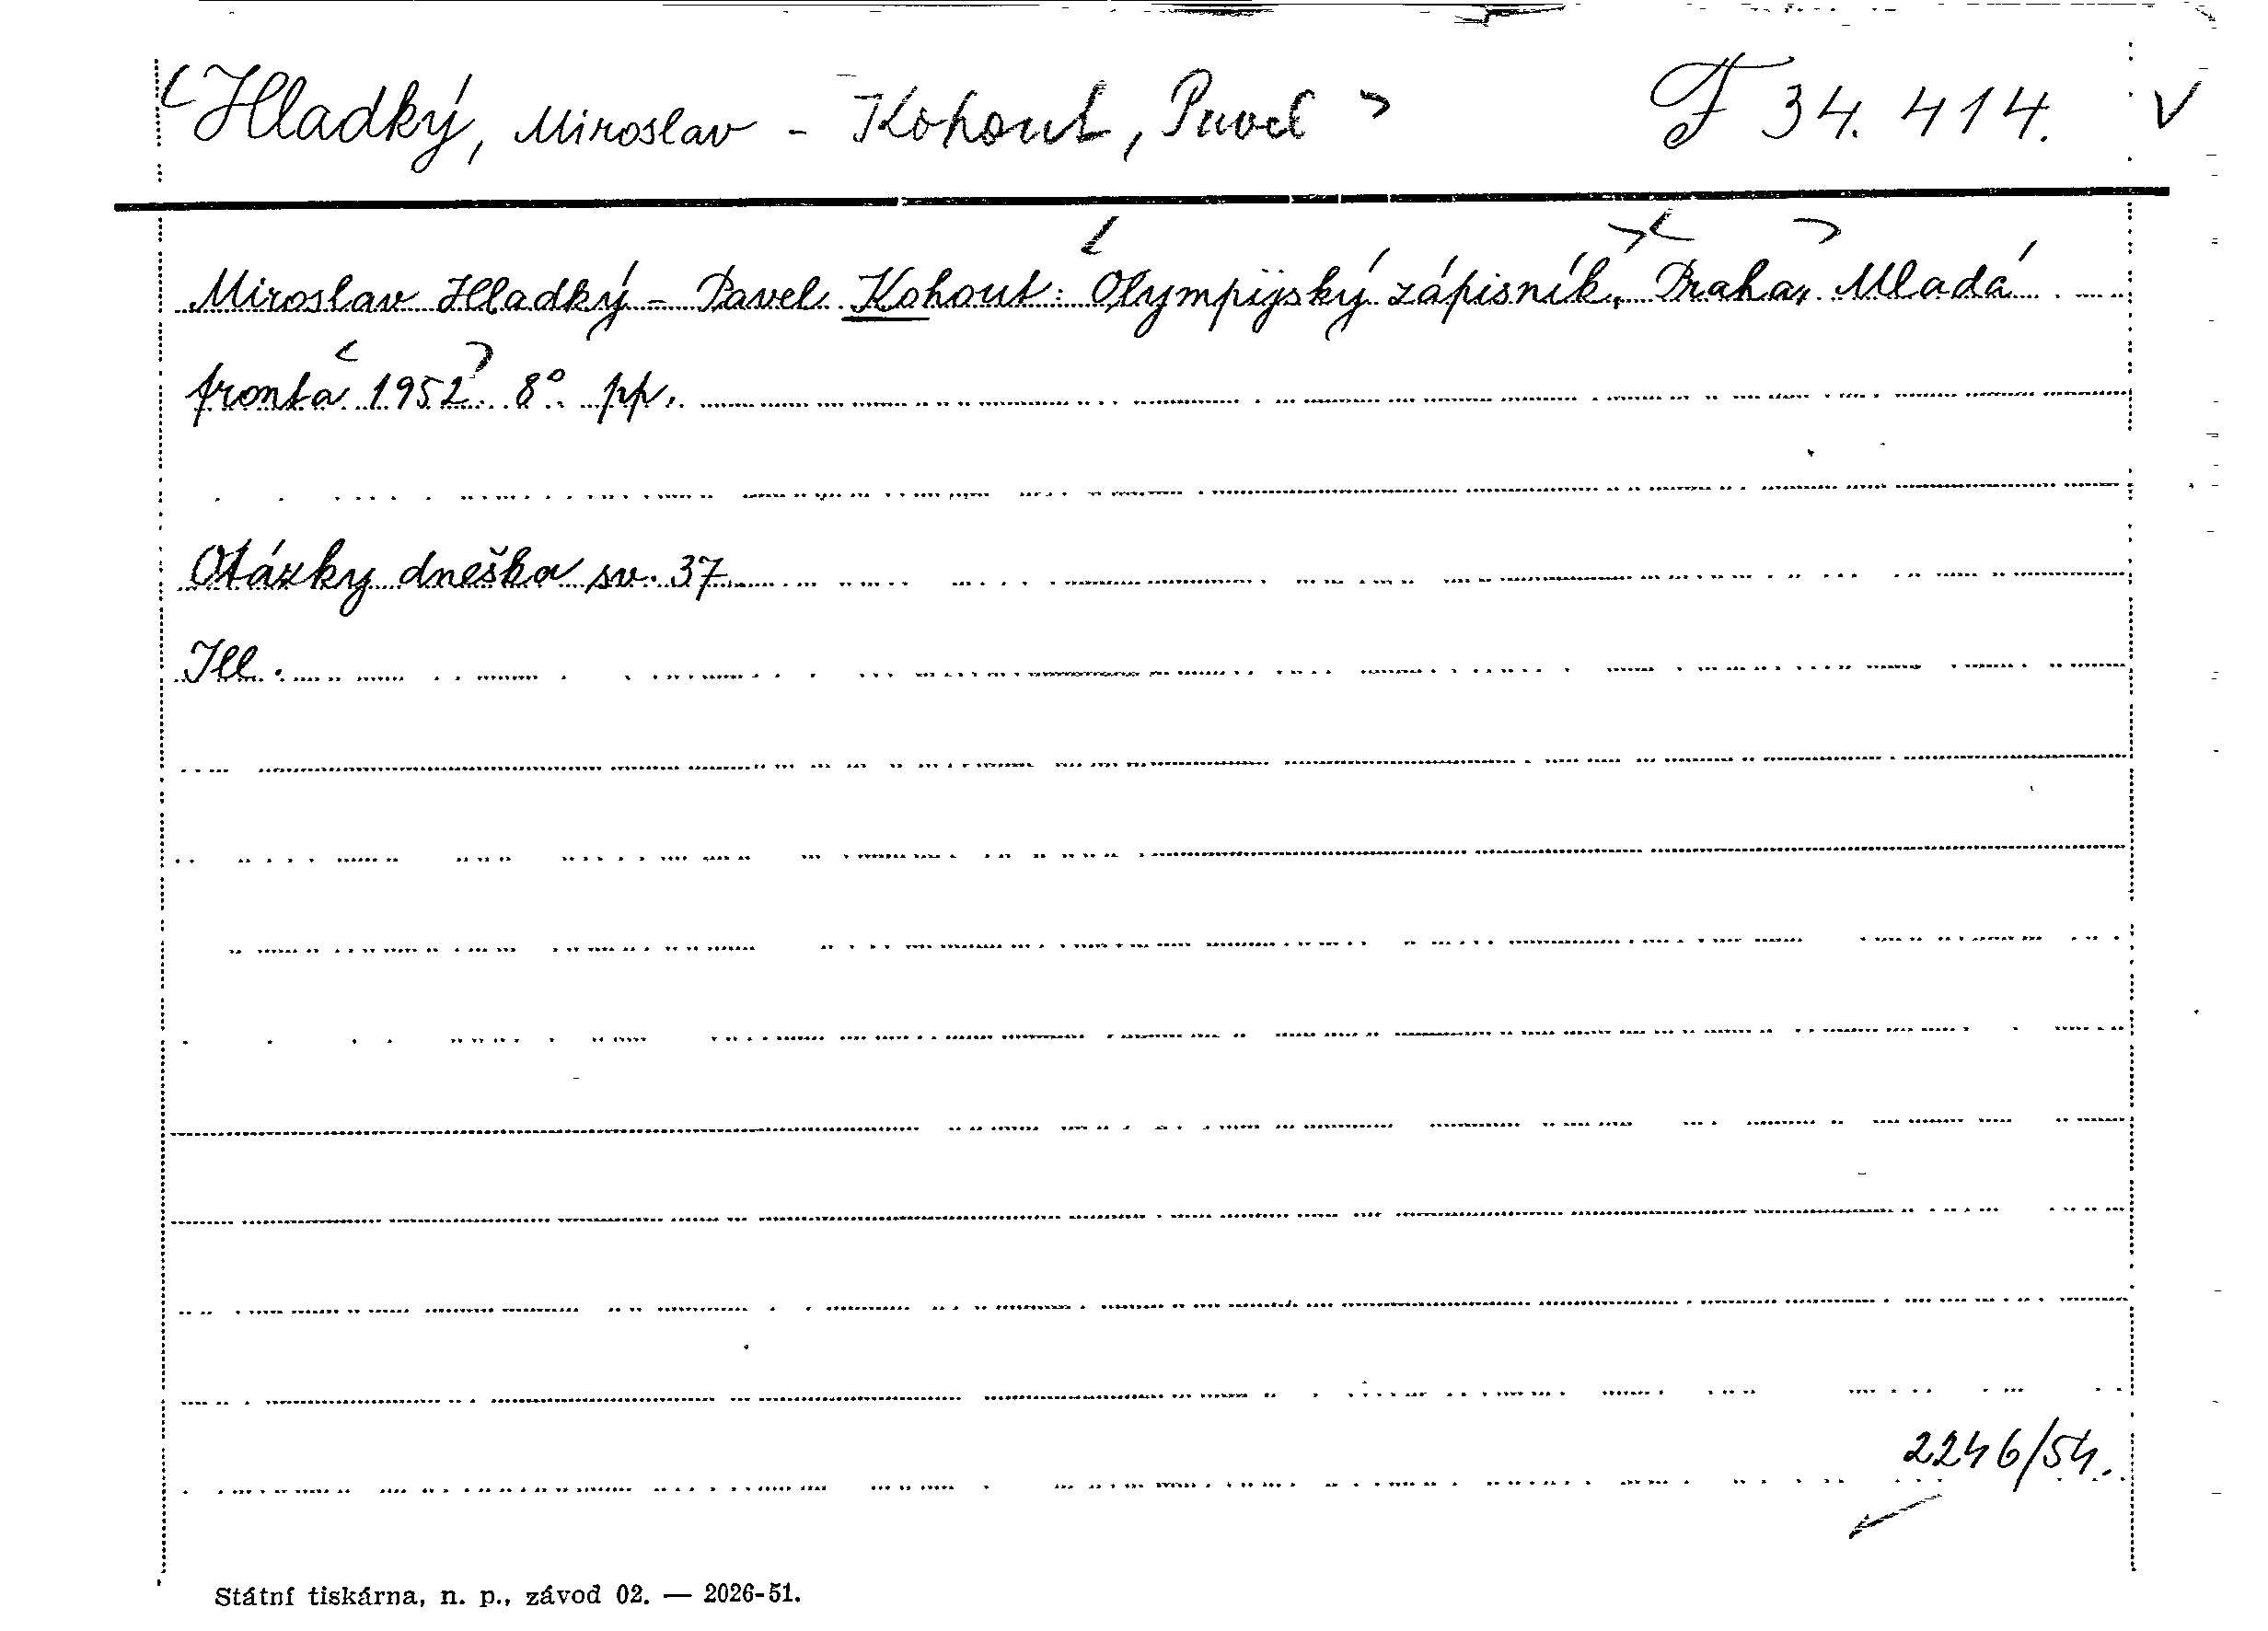 Hladký, Miroslav - Kohout, Pavel F 34.414. V
Miroslav Hladký - Pavel Kohout: Olympijský zápisník, Praha, Mladá
fronta 1952. 8° pp.
Otázky dneška sv. 37.
Ill.
2246/54.
Státní tiskárna, n. p., závod 02. — 2026-51.